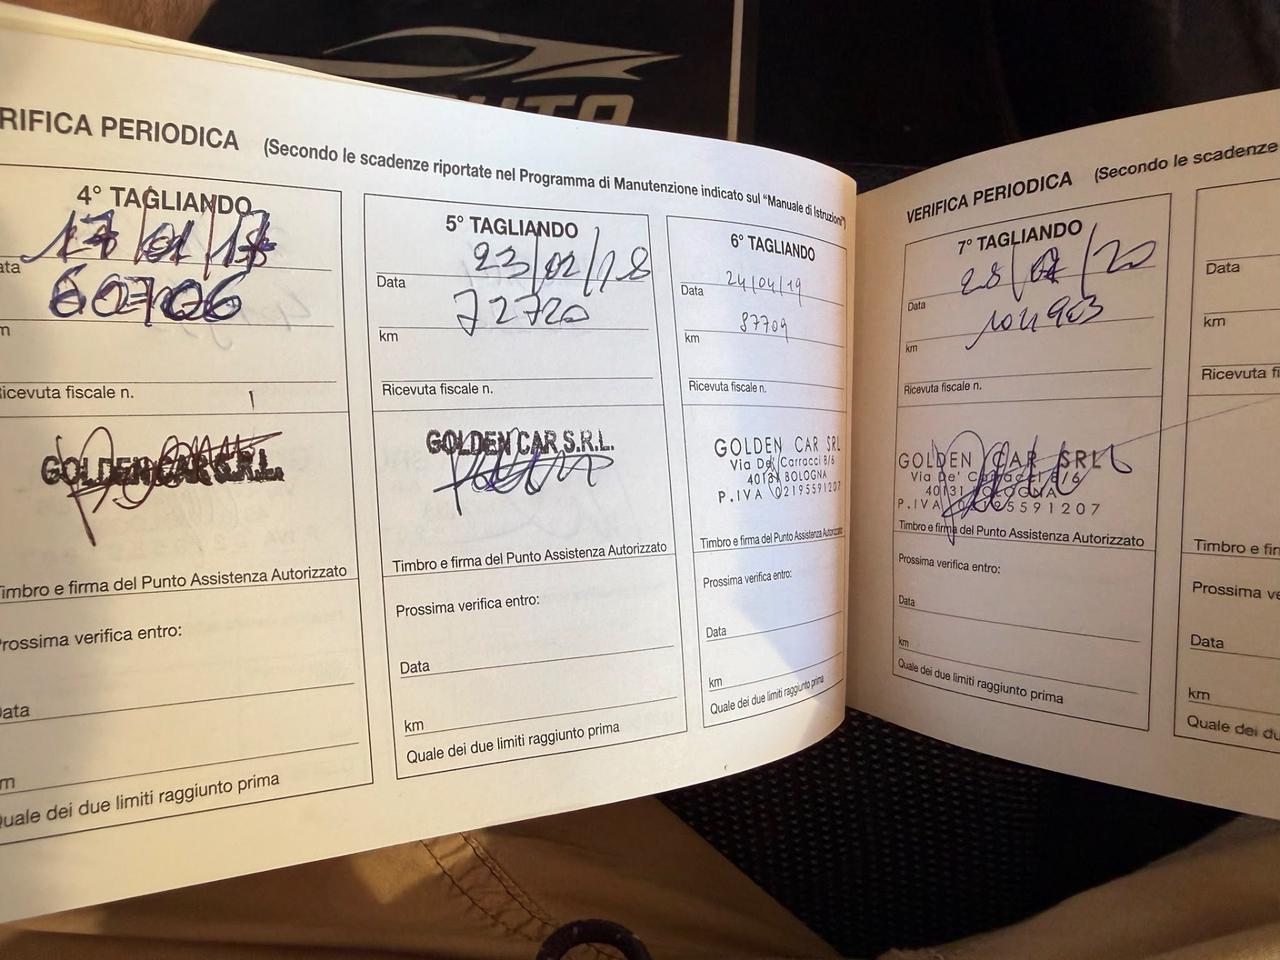 AUTO
RIFICA PERIODICA (Secondo le scadenze riportate nel Programma di Manutenzione indicato sul "Manuale di Istruzioni")
4° TAGLIANDO
17/01/17
ata
60706
m
Ricevuta fiscale n.
GOLDEN CAR S.R.L.
Timbro e firma del Punto Assistenza Autorizzato
Prossima verifica entro:
Data
m
Quale dei due limiti raggiunto prima
5° TAGLIANDO
23/02/18
Data
72720
km
Ricevuta fiscale n.
GOLDEN CAR S.R.L.
Timbro e firma del Punto Assistenza Autorizzato
Prossima verifica entro:
Data
km
Quale dei due limiti raggiunto prima
6° TAGLIANDO
24/04/19
Data
87709
km
Ricevuta fiscale n.
GOLDEN CAR SRL
Via De' Carracci 8/6
40131 BOLOGNA
P.IVA 02195591207
Timbro e firma del Punto Assistenza Autorizzato
Prossima verifica entro:
Data
km
Quale dei due limiti raggiunto prima
VERIFICA PERIODICA (Secondo le scadenze
7° TAGLIANDO
Data
104903
km
Ricevuta fiscale n.
GOLDEN CAR SRL
Via De' Carracci 8/6
40131 BOLOGNA
P.IVA 02195591207
Timbro e firma del Punto Assistenza Autorizzato
Prossima verifica entro:
Data
km
Quale dei due limiti raggiunto prima
Data
km
Ricevuta fi
Timbro e fir
Prossima ve
Data
km
Quale dei du